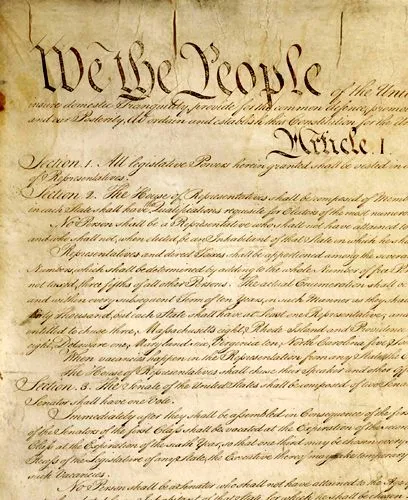 We the People of the Unit
insure domestic Tranquility, provide for the common defence, promo
and our Posterity, do ordain and establish this Constitution for the Un
Article. I.
Section. 1. All legislative Powers herein granted shall be vested in a
of Representatives.
Section. 2. The House of Representatives shall be composed of Memb
in each State shall have Qualifications requisite for Electors of the most numero
No Person shall be a Representative who shall not have attained to
and who shall not, when elected, be an Inhabitant of that State in which he sha
Representatives and direct Taxes shall be apportioned among the several
Numbers, which shall be determined by adding to the whole Number of free P
not taxed, three fifths of all other Persons. The actual Enumeration shall b
and within every subsequent Term of ten Years, in such Manner as they sha
thirty Thousand, but each State shall have at Least one Representative; and
entitled to chuse three, Massachusetts eight, Rhode Island and Providence
eight, Delaware one, Maryland six, Virginia ten, North Carolina five, Sou
When vacancies happen in the Representation from any State, the E
The House of Representatives shall chuse their Speaker and other Off
Section. 3. The Senate of the United States shall be composed of two Sena
Senator shall have one Vote.
Immediately after they shall be assembled in Consequence of the firs
of the Senators of the first Class shall be vacated at the Expiration of the secon
Class at the Expiration of the sixth Year, so that one third may be chosen every s
Recess of the Legislature of any State, the Executive thereof may make tempora
such Vacancies.
No Person shall be a Senator who shall not have attained to the Age